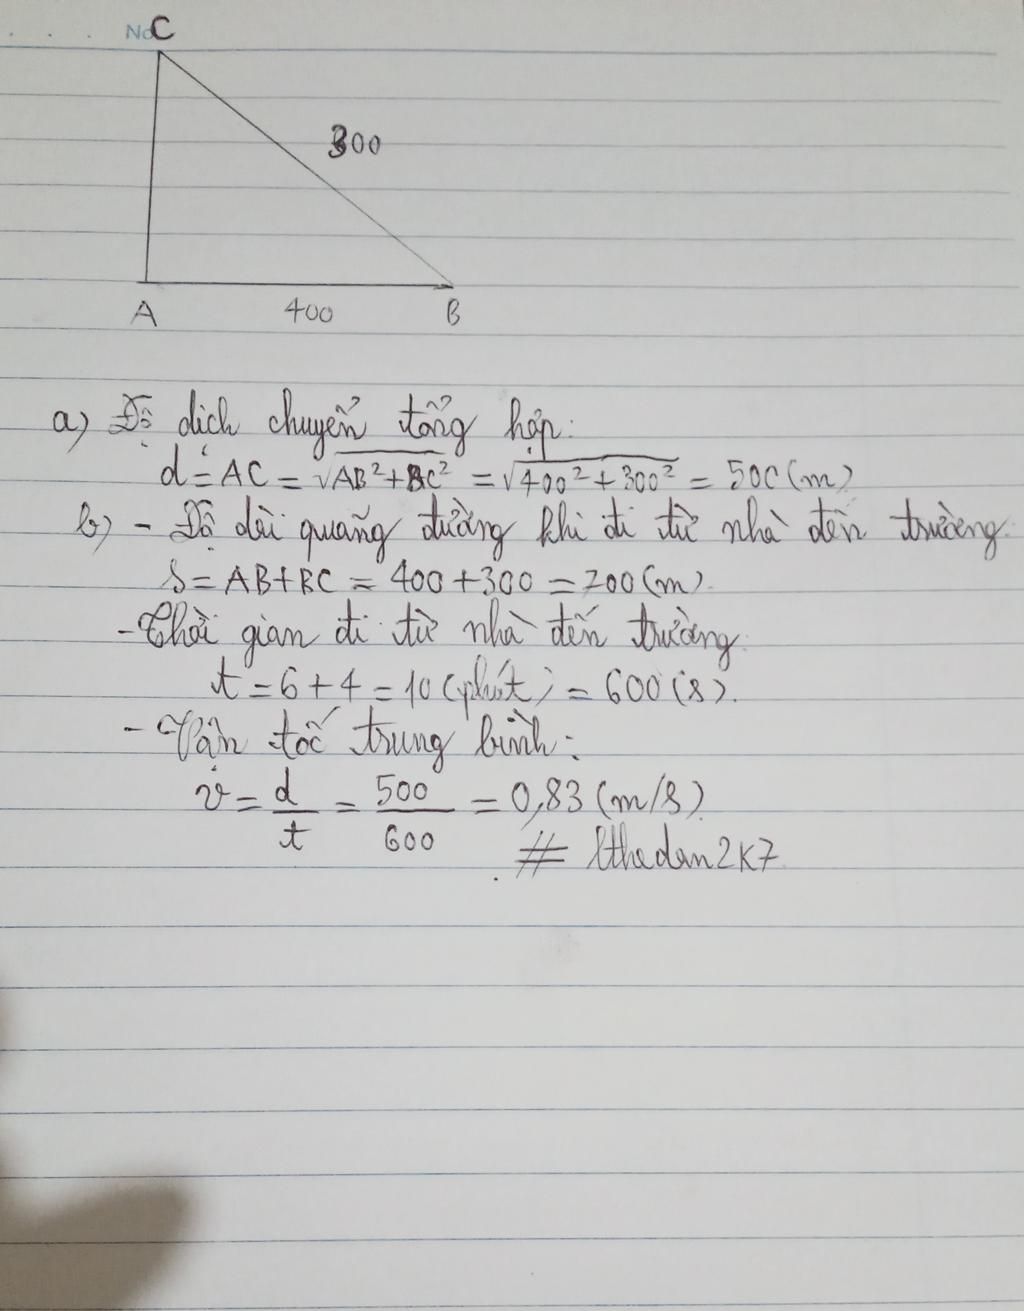 No C
300
A 400 B
a) Độ dịch chuyển tổng hợp:
d = AC = √AB²+BC² = √400²+300² = 500 (m)
b) - Độ dài quãng đường khi đi từ nhà đến trường
S = AB+BC = 400+300 = 700 (m).
- Thời gian đi từ nhà đến trường
t = 6+4 = 10 (phút) = 600 (s).
- Vận tốc trung bình:
v = d/t = 500/600 = 0,83 (m/s)